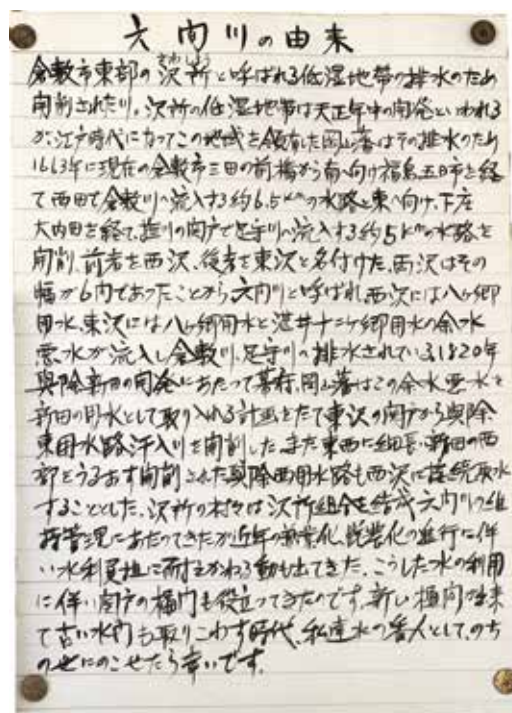 六間川の由来
倉敷市東部の沢所と呼ばれる低湿地帯の排水のため
開削された川。沢所の低湿地帯は天正年中の開発といわれる
が、江戸時代になってこの地域を領有した岡山藩はその排水のため
1663年に現在の倉敷市三田の前橋から南へ向け福島五日市を経
て西田で倉敷川へ流入する約6.5kmの水路と東へ向け、下庄
大内田を経て、撫川の関戸で足守川へ流入する約5kmの水路を
開削、前者を西沢、後者を東沢と名付けた。両沢はその
幅が6間であったことから六間川と呼ばれ西沢には八ヶ郷
用水、東沢には八ヶ郷用水と湛井十二ヶ郷用水の余水
悪水が流入し倉敷川、足守川へ排水されている。1820年
興除新田の開発にあたって幕府、岡山藩はこの余水悪水を
新田の用水として取り入れる計画をたて東沢の関戸から興除
東用水路汗入川を開削した。また東西に細長い新田の西
部をうるおす開削された興除西用水路も西沢に接続取水
することとした。沢所の村々は沢所組合を結成六間川の維
持管理にあたってきたが近年の兼業化、脱農化の進行に伴
い水利負担に耐えかねる動も出てきた。こうした水の利用
に伴い関戸の樋門も役立ってきたのです。新しい樋門が出来
て古い水門も取りこわす時代、私達水の番人として、のち
の世にのこせたら幸いです。